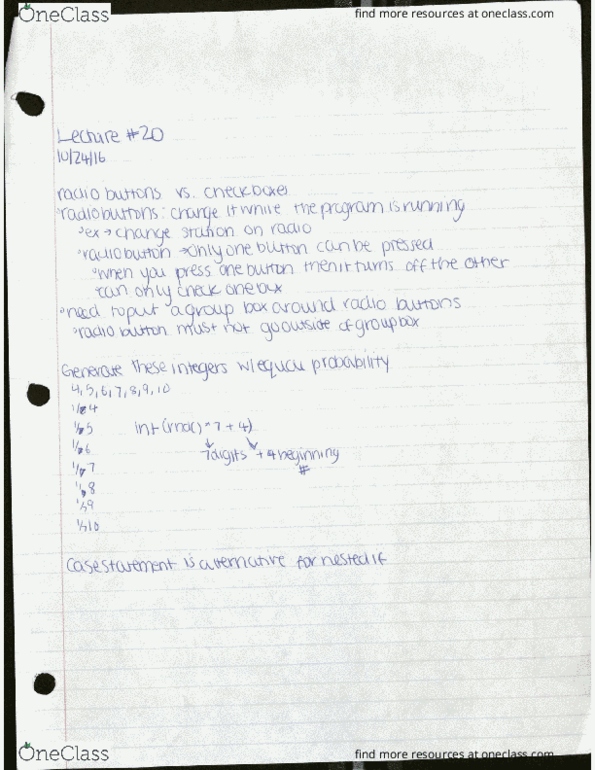 OneClass
find more resources at oneclass.com
Lecture #20
10/24/16
radio buttons vs. checkboxes
radiobuttons: change it while the program is running
ex → change station on radio
radiobutton → only one button can be pressed
when you press one button then it turns off the other
can only check one box
need to put a group box around radio buttons
radio button must not go outside of group box
Generate these integers w/ equal probability
4, 5, 6, 7, 8, 9, 10
4
5
int (rnd() * 7 + 4)
6
7 digits + 4 beginning
#
7
8
1/7 9
1/7 10
Case statement is alternative for nested if
OneClass
find more resources at oneclass.com